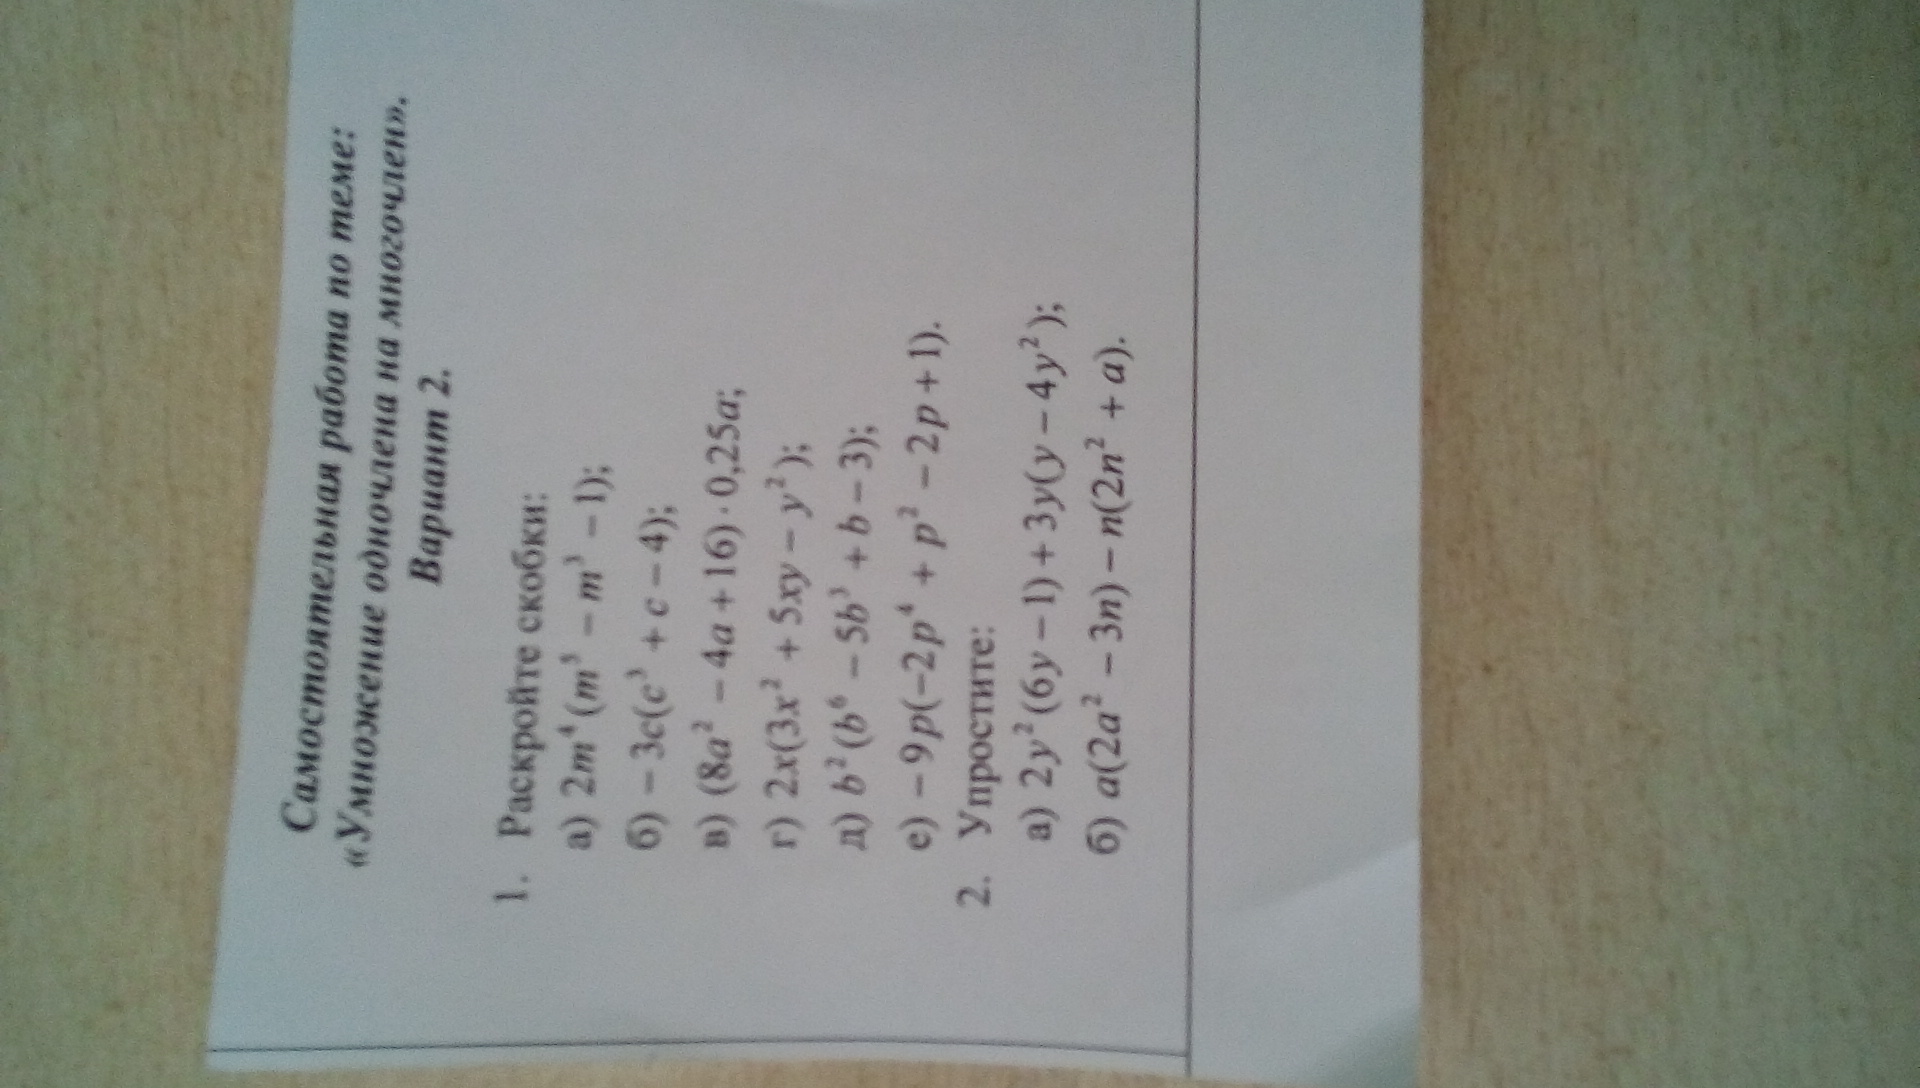 Самостоятельная работа по теме:
«Умножение одночлена на многочлен».
Вариант 2.
1. Раскройте скобки:
а) 2m⁴(m⁵ − m³ − 1);
б) − 3c(c³ + c − 4);
в) (8a² − 4a + 16) · 0,25a;
г) 2x(3x² + 5xy − y²);
д) b²(b⁶ − 5b³ + b − 3);
е) − 9p(−2p⁴ + p² − 2p + 1).
2. Упростите:
а) 2y²(6y − 1) + 3y(y − 4y²);
б) a(2a² − 3n) − n(2n² + a).